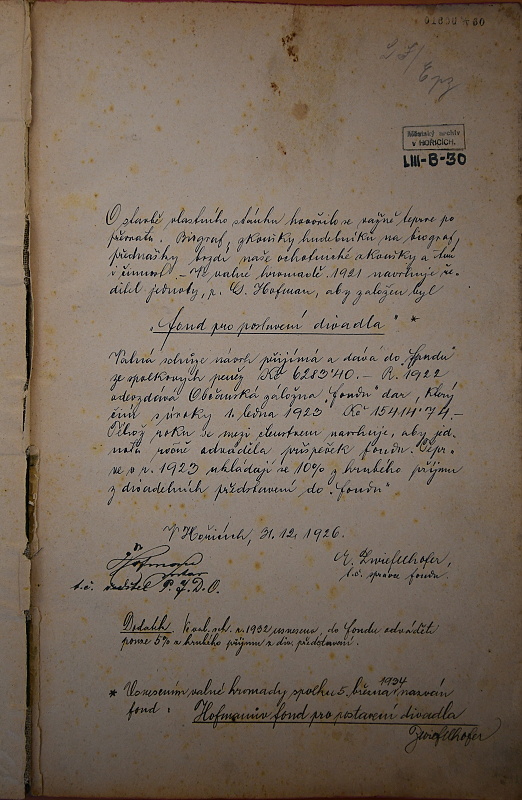 01800 *30
Městský archiv
v HOŘICÍCH.
LIII-B-30
O stavbě vlastního stánku hovořilo se vážně teprve po
převratu. Biograf, zkoušky hudebníků na biograf,
přednášky brzdí naše ochotnické zkoušky a tím
i činnost. - Ve valné hromadě 1921 navrhuje ře-
ditel jednoty, p. Hofman, aby založen byl
„fond pro postavení divadla" *
Valná schůze návrh přijímá a dává do „fondu"
ze spolkových peněz Kč 6283'40.- R. 1922
odevzdává Občanská záložna „fondu" dar, který
činí s úroky 1. ledna 1923 Kč 15414'74.-
Téhož roku se mezi členstvem navrhuje, aby jed-
nota ročně odváděla příspěvek fondu. Tepr-
ve v r. 1923 ukládají se 10% z hrubého příjmu
z divadelních představení do „fondu"
V Hořicích, 31. 12. 1926.
Hofman
t.č. ředitel P. J. D. O.
Zwiefelhofer,
t.č. správce fondu.
Dodatek. Ve val. sch. r. 1932 usneseno, do fondu odváděti
pouze 5% z hrubého příjmu z div. představení.
* Usnesením valné hromady spolku 5. března 1934 nazván
fond: Hofmanův fond pro postavení divadla
Zwiefelhofer